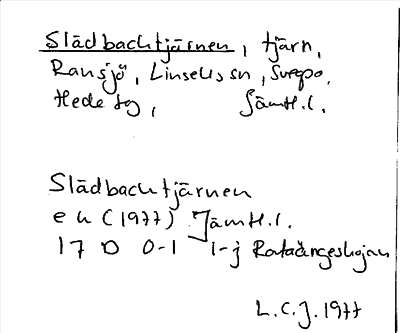 Slädbacktjärnen, tjärn,
Ransjö, Linsells sn, Sveg po,
Hede tg, Jämtl.l.
Slädbacktjärnen
e k (1977) Jämtl.l.
17 D 0-1 i-j Rotadängeskojan
L.C.J. 1977